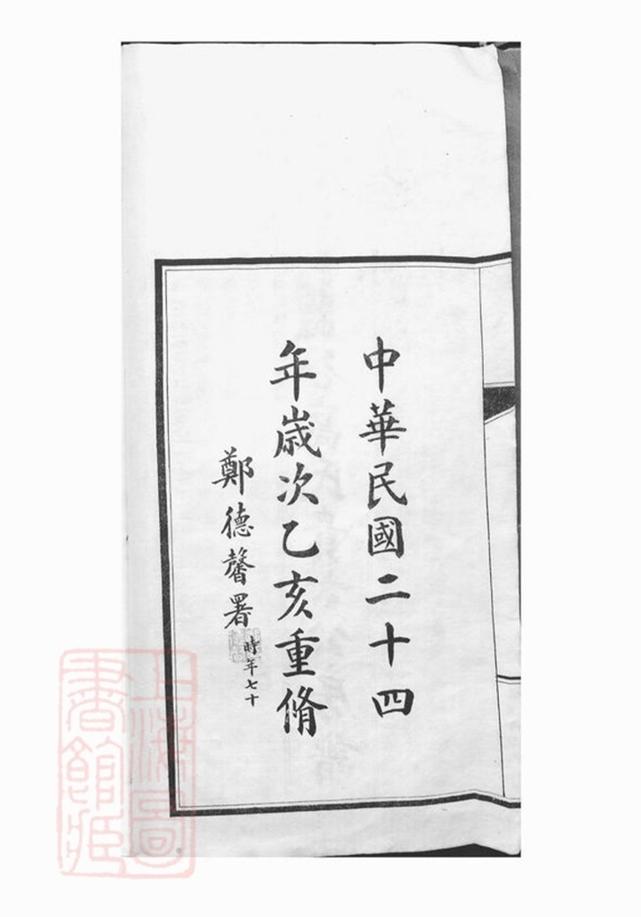 中華民國二十四
年歲次乙亥重脩
鄭德馨署
時年七十
上海圖
書館藏